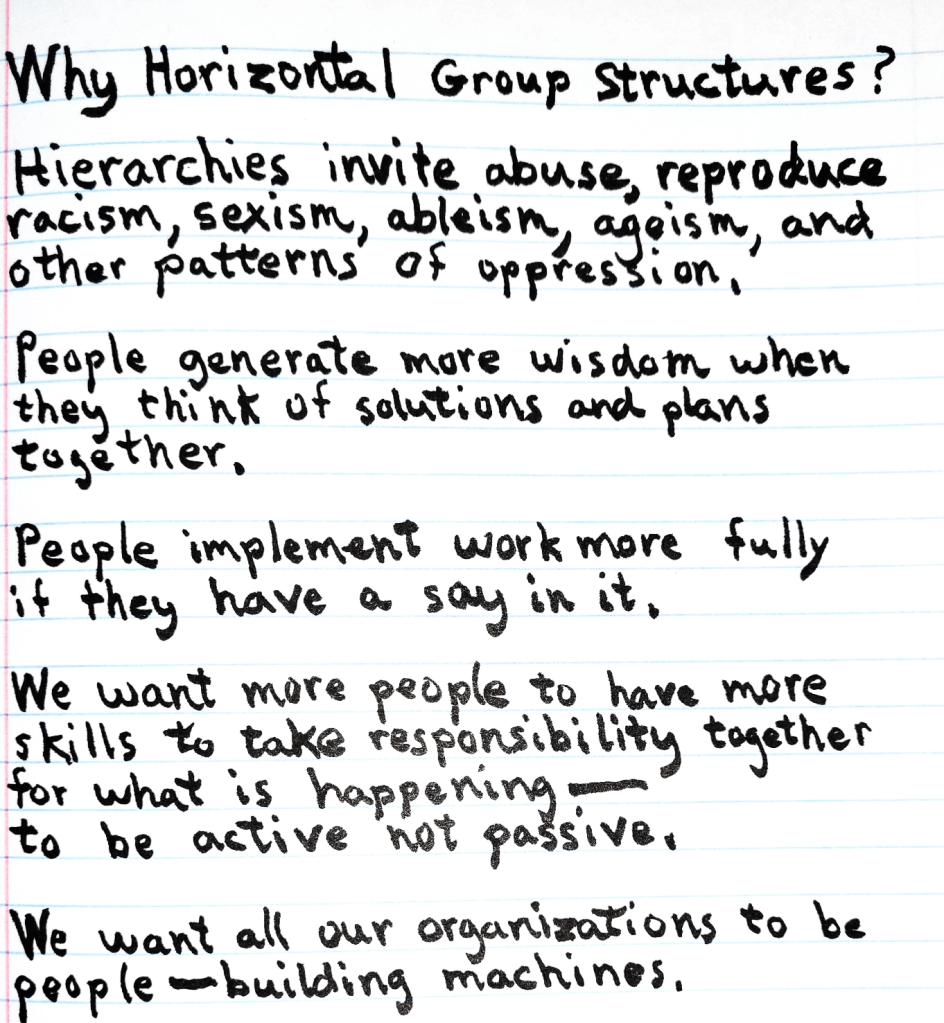 Why Horizontal Group Structures?
Hierarchies invite abuse, reproduce
racism, sexism, ableism, ageism, and
other patterns of oppression.
People generate more wisdom when
they think of solutions and plans
together.
People implement work more fully
if they have a say in it.
We want more people to have more
skills to take responsibility together
for what is happening —
to be active not passive.
We want all our organizations to be
people — building machines.